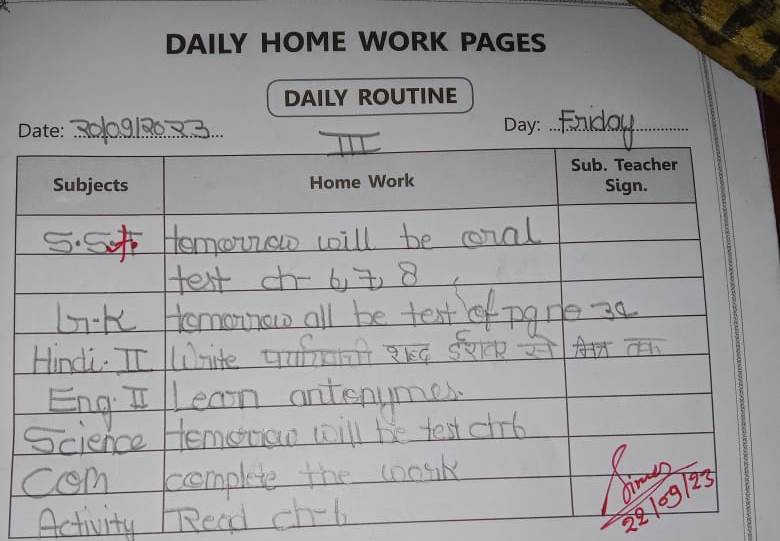 DAILY HOME WORK PAGES
DAILY ROUTINE
Date: 22/09/2023 Day: Friday
III
Subjects Home Work Sub. Teacher Sign.
S.St. tomorrow will be oral
test ch- 6, 7, 8
G-K tomorrow all be test of pg no 32
Hindi. II Write पर्यायवाची शब्द ईश्वर से मित्र तक
Eng. II Learn antonymes.
Science temorrow will be test ch-6
Com complete the work
Activity Read ch-6
22/09/23